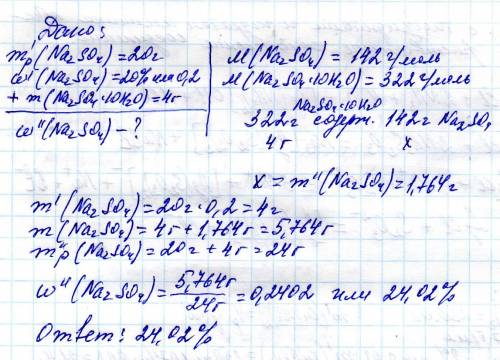 Дано:
m'р(Na₂SO₄) = 20г
ω'(Na₂SO₄) = 20% или 0,2
+ m(Na₂SO₄·10H₂O) = 4г
ω''(Na₂SO₄) - ?
M(Na₂SO₄) = 142 г/моль
M(Na₂SO₄·10H₂O) = 322 г/моль
Na₂SO₄·10H₂O
322г содерж. 142г Na₂SO₄
4г x
x = m''(Na₂SO₄) = 1,764г
m'(Na₂SO₄) = 20г·0,2 = 4г
m(Na₂SO₄) = 4г + 1,764г = 5,764г
m''р(Na₂SO₄) = 20г + 4г = 24г
ω''(Na₂SO₄) = 5,764г / 24г = 0,2402 или 24,02%
Ответ: 24,02%